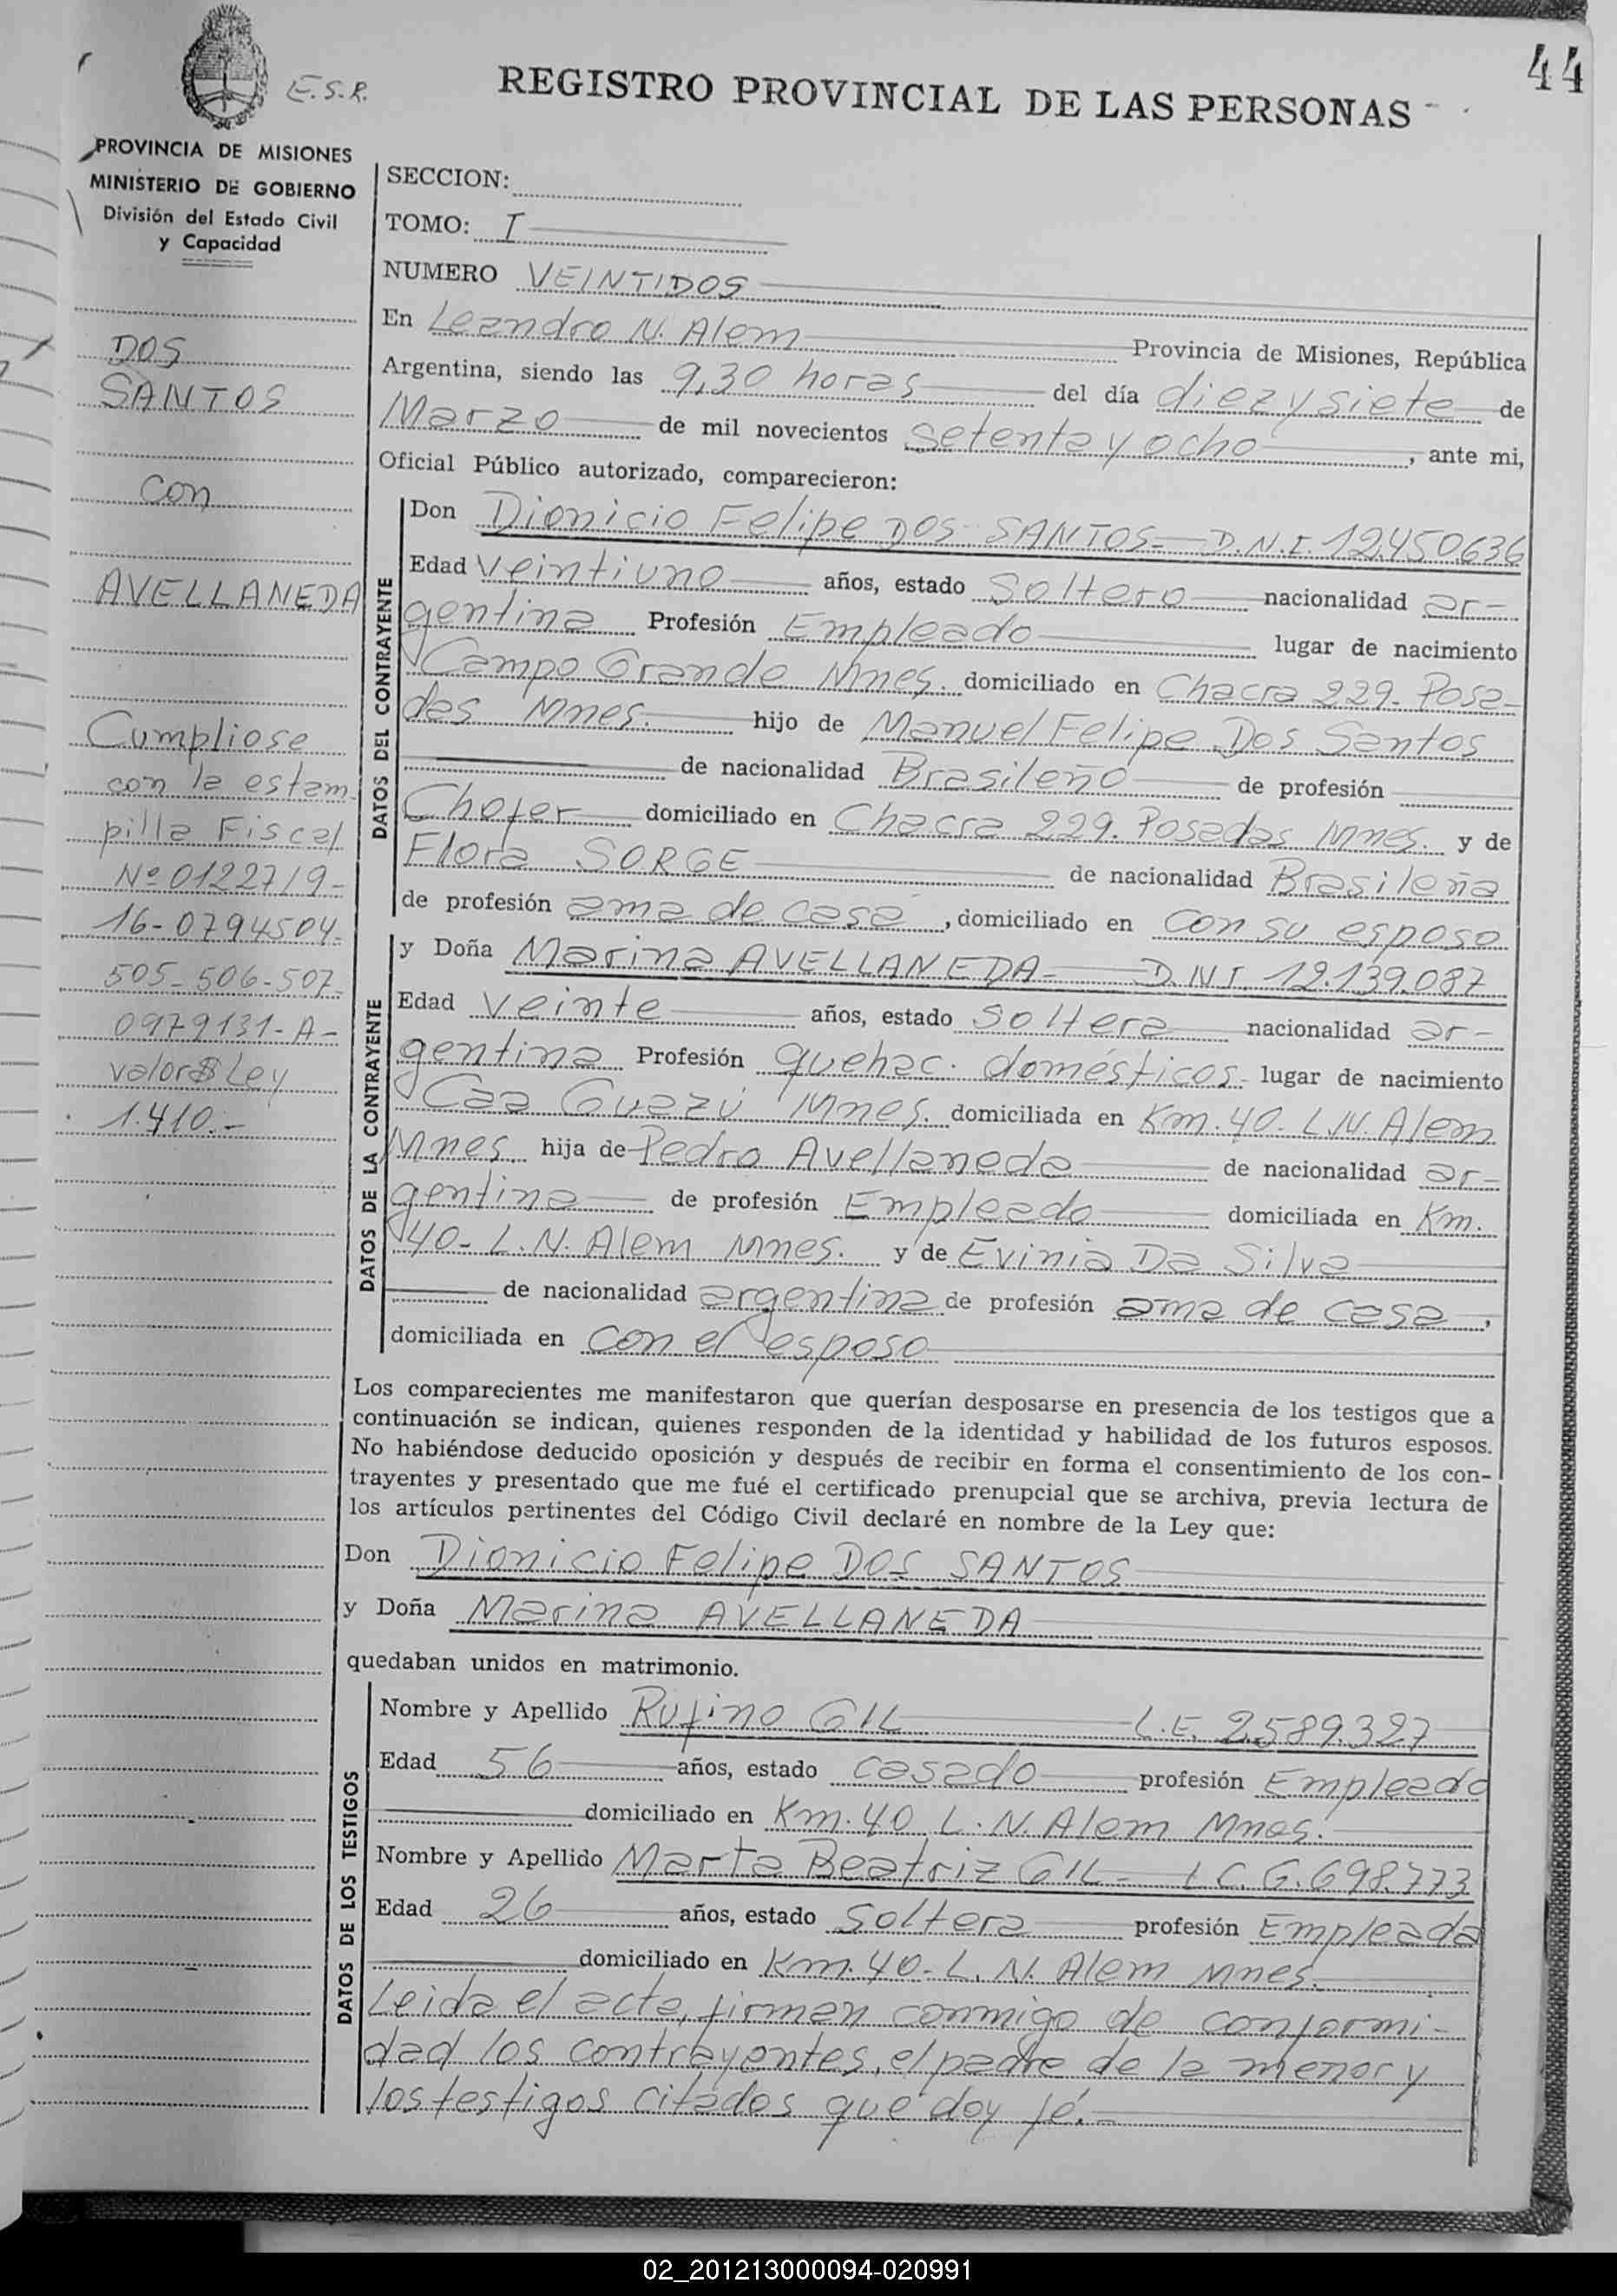 44
E.S.R.
REGISTRO PROVINCIAL DE LAS PERSONAS
PROVINCIA DE MISIONES
MINISTERIO DE GOBIERNO
División del Estado Civil
y Capacidad
DOS
SANTOS
con
AVELLANEDA
Cumpliose
con la estam
pilla Fiscal
Nº 0122719-
16-0794504-
505-506-507-
0979131-A-
valor$ Ley
1.410.-
SECCION:
TOMO: I
NUMERO VEINTIDOS
En Leandro N. Alem Provincia de Misiones, República
Argentina, siendo las 9,30 horas del día diez y siete de
Marzo de mil novecientos setenta y ocho, ante mi,
Oficial Público autorizado, comparecieron:
DATOS DEL CONTRAYENTE
Don Dionicio Felipe DOS SANTOS- D.N.I. 12.450.636
Edad veintiuno años, estado Soltero nacionalidad ar-
gentina Profesión Empleado lugar de nacimiento
Campo Grande Mnes. domiciliado en Chacra 229. Posa-
das Mnes. hijo de Manuel Felipe Dos Santos
de nacionalidad Brasileño de profesión
Chofer domiciliado en Chacra 229. Posadas Mnes. y de
Flora SORGE de nacionalidad Brasileña
de profesión ama de casa, domiciliado en con su esposo
DATOS DE LA CONTRAYENTE
y Doña Marina AVELLANEDA- D.N.I. 12.139.087
Edad veinte años, estado Soltera nacionalidad ar-
gentina Profesión quehac. domésticos- lugar de nacimiento
Caa Guazú Mnes. domiciliada en Km. 40- L.N. Alem
Mnes. hija de Pedro Avellaneda de nacionalidad ar-
gentina de profesión Empleado domiciliada en Km.
40- L.N. Alem Mnes. y de Evinia Da Silva
de nacionalidad argentina de profesión ama de casa,
domiciliada en con el esposo
Los comparecientes me manifestaron que querían desposarse en presencia de los testigos que a
continuación se indican, quienes responden de la identidad y habilidad de los futuros esposos.
No habiéndose deducido oposición y después de recibir en forma el consentimiento de los con-
trayentes y presentado que me fué el certificado prenupcial que se archiva, previa lectura de
los artículos pertinentes del Código Civil declaré en nombre de la Ley que:
Don Dionicio Felipe DOS SANTOS
y Doña Marina AVELLANEDA
quedaban unidos en matrimonio.
DATOS DE LOS TESTIGOS
Nombre y Apellido Rufino GIL L.E. 2.589.327
Edad 56 años, estado casado profesión Empleado
domiciliado en Km. 40 L.N. Alem Mnes.
Nombre y Apellido Marta Beatriz GIL- L.C. 6.698.773
Edad 26 años, estado Soltera profesión Empleada
domiciliado en Km. 40- L.N. Alem Mnes.
Leida el acta, firman conmigo de conformi-
dad los contrayentes, el padre de la menor y
los testigos citados que doy fé.-
02_201213000094-020991